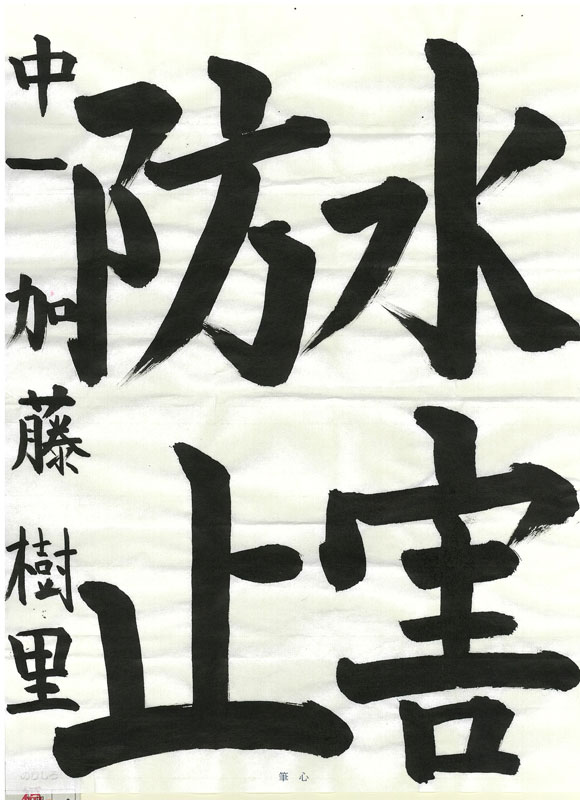 水害
防止
中一 加藤樹里
筆心